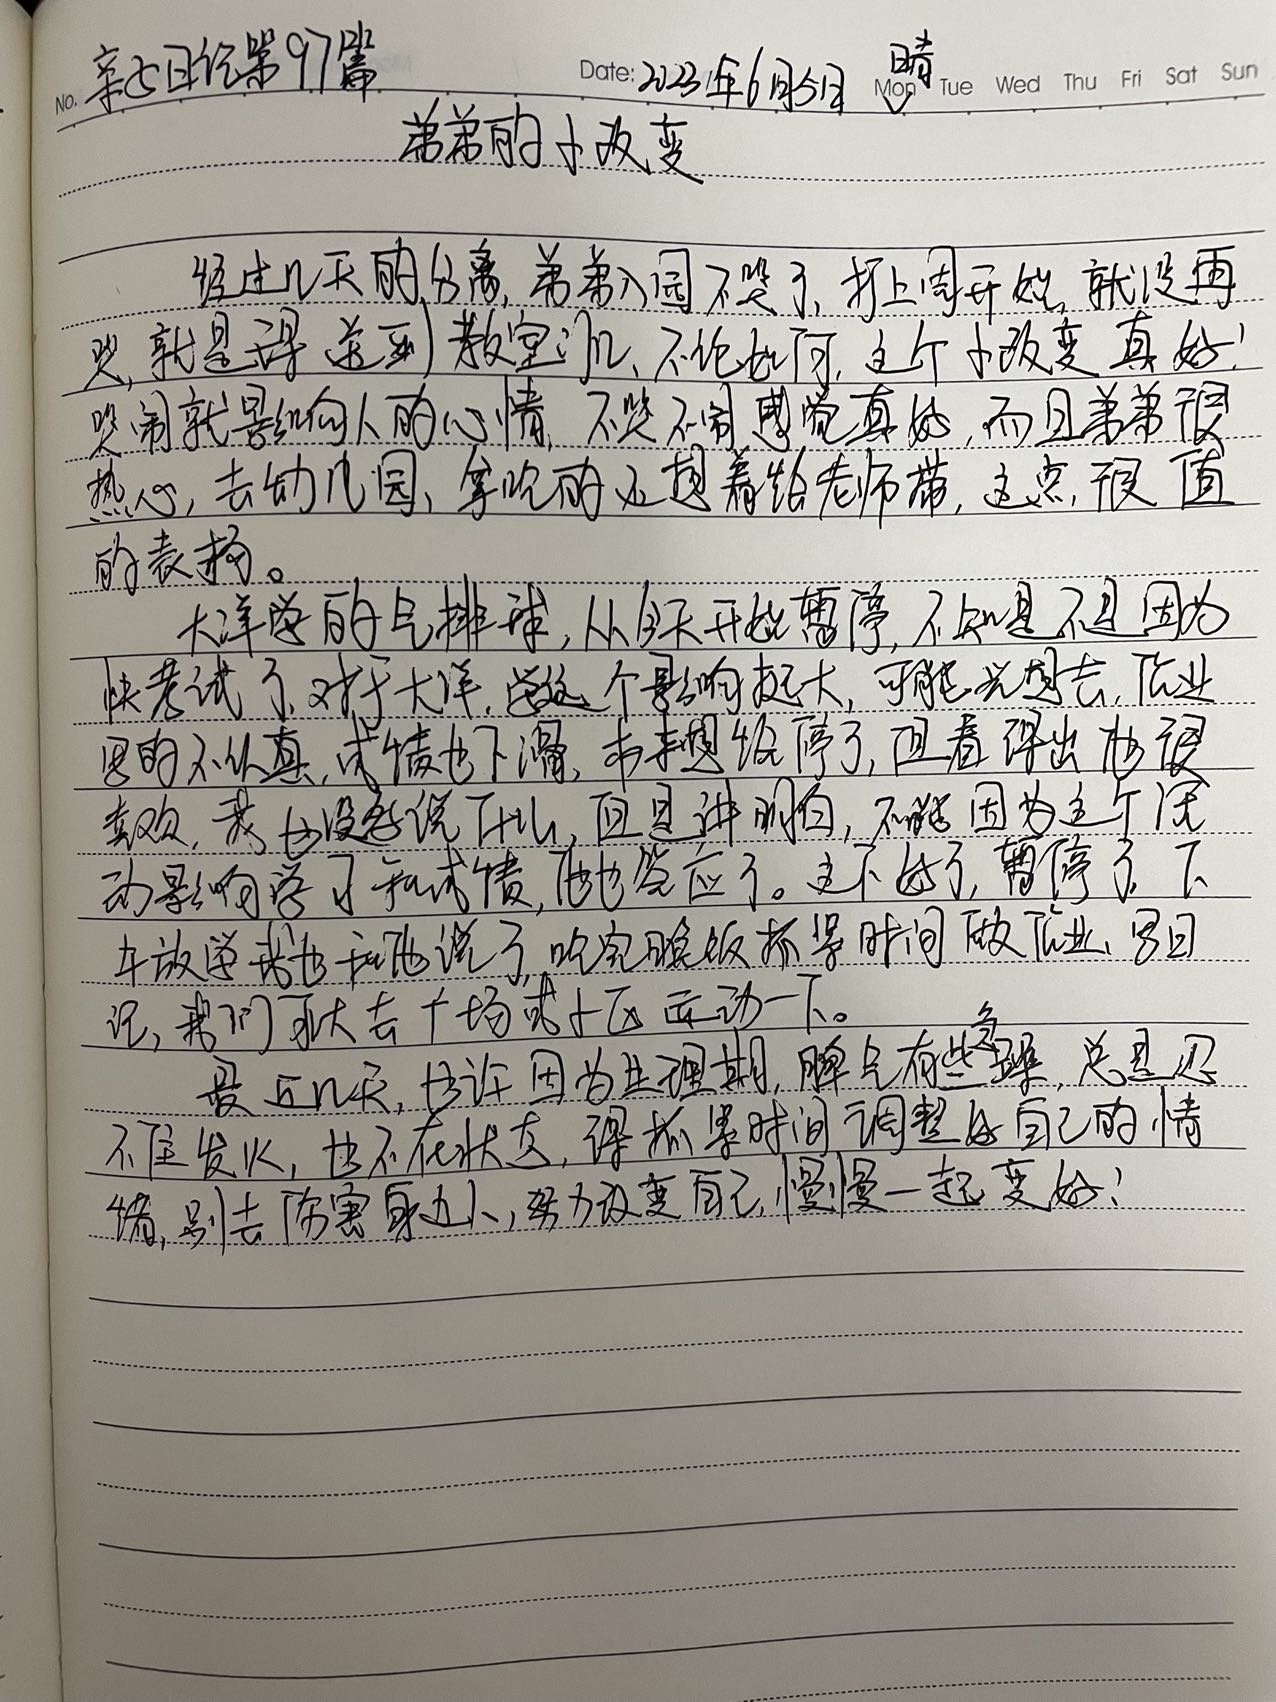 No. 日记第97篇 Date: 2023年6月5日 晴 Mon Tue Wed Thu Fri Sat Sun
弟弟的小改变
经过几天的分离,弟弟入园不哭了,打上周开始,就没再
哭,就是得送到教室门,不论如何,这个小改变真好!
哭闹就影响人的心情,不哭不闹感觉真好,而且弟弟很
热心,去幼儿园,拿吃的还想着给老师带,这点,很值
的表扬。
大洋学的气排球,从今天开始暂停,不知是不是因为
快考试了,对于大洋,学这个影响挺大,可能光想去,作业
写的不认真,成绩也下滑,本来想给停了,但看得出他很
喜欢,我也没多说什么,但是讲明白,不能因为这个活
动影响学习和成绩,他也答应了。这下好了,暂停了,下
午放学我也和他说了,吃完晚饭抓紧时间做作业、写日
记,我们可以去广场或小区运动一下。
最近几天,也许因为生理期,脾气有些急躁,总是忍
不住发火,也不在状态,得抓紧时间调整好自己的情
绪,别去伤害身边人,努力改变自己,慢慢一起变好!